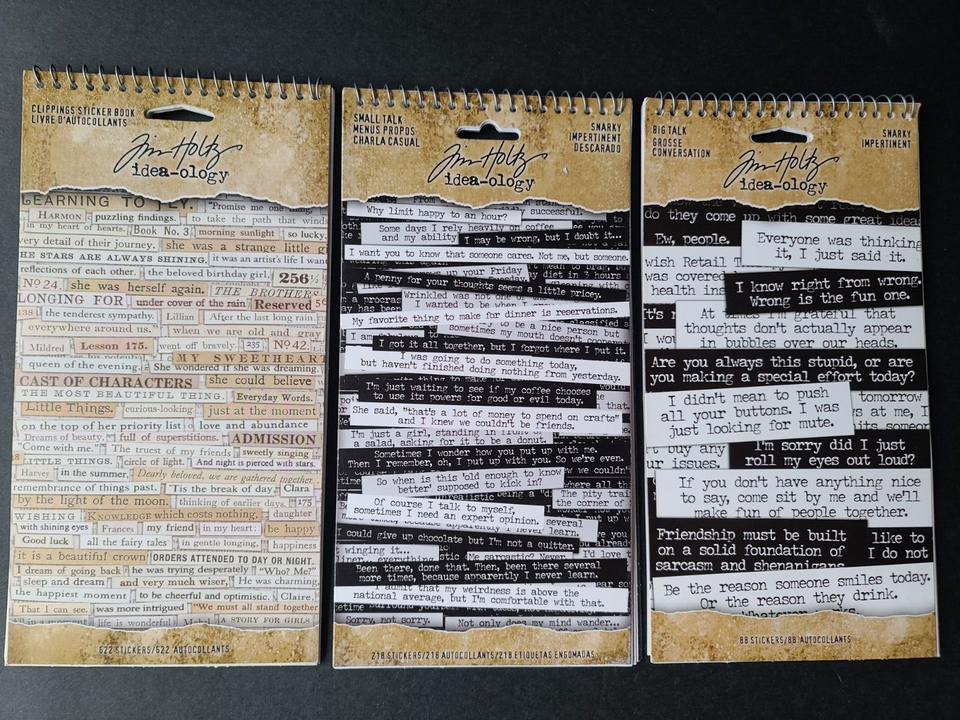 CLIPPINGS STICKER BOOK
LIVRE D'AUTOCOLLANTS
Tim Holtz
idea-ology
LEARNING TO FLY.
"Promise me one thing
HARMON
puzzling findings.
to take the path that winds
in my heart of hearts.
Book No. 3
morning sunlight
so lucky.
very detail of their journey.
she was a strange little g
HE STARS ARE ALWAYS SHINING.
it was an artist's life I want
reflections of each other.
the beloved birthday girl,
256½
No 24.
she was herself again.
THE BROTHERS
LONGING FOR
under cover of the rain
Reserved
the tenderest sympathy.
Lillian
After the last long rain
everywhere around us."
when we are old and gray
Mildred
Lesson 175.
went off bravely.
235
No 42.
MY SWEETHEART
queen of the evening.
She wondered if she was dreaming.
CAST OF CHARACTERS
she could believe
THE MOST BEAUTIFUL THING.
Everyday Words.
Little Things.
curious-looking
just at the moment
on the top of her priority list
love and abundance
Dreams of beauty.
full of superstitions.
ADMISSION
"Come with me."
The trust of my friends
sweetly singing
LITTLE THINGS.
circle of light.
And night is pierced with stars.
Harvey
in the summer,
Dearly beloved, we are gathered together
remembrance of things past.
'Tis the break of day,
Clara
by the light of the moon.
thinking of earlier days,
175
WISHING
KNOWLEDGE which costs nothing,
daughter
with shining eyes
Frances
my friend
in my heart:
be happy
Good luck
all the fairy tales
in gentle longing,
happiness
it is a beautiful crown!
ORDERS ATTENDED TO DAY OR NIGHT.
dream of going back
he was trying desperately
"Who? Me?"
sleep and dream
and very much wiser,
He was charming,
the happiest moment
to be cheerful and optimistic.
Claire,
That I can see.
was more intrigued
"We must all stand together
life is wonderful
A STORY FOR GIRLS
522 STICKERS/522 AUTOCOLLANTS
SMALL TALK
MENUS PROPOS
CHARLA CASUAL
SNARKY
IMPERTINENT
DESCARADO
Tim Holtz
idea-ology
Why limit happy to an hour?
successful.
Some days I rely heavily on coffee
and my ability
I may be wrong, but I doubt it...
I want you to know that someone cares. Not me, but someone.
up your Friday
my diet in 3 hours
A penny for your thoughts seems a little pricey.
Wrinkled was not one of
I wanted to be when I
My favorite thing to make for dinner is reservations.
to be a nice person but
sometimes my mouth doesn't cooperate
I got it all together, but I forgot where I put it.
I was going to do something today,
but haven't finished doing nothing from yesterday.
I'm just waiting to see if my coffee chooses
to use its powers for good or evil today.
She said, "that's a lot of money to spend on crafts"
and I knew we couldn't be friends.
I'm just a girl, standing in front of
a salad, asking for it to be a donut.
Sometimes I wonder how you put up with me.
Then I remember, oh, I put up with you. So we're even.
So when is this 'old enough to know
better' supposed to kick in?
The pity train
the corner of
Of course I talk to myself,
sometimes I need an expert opinion.
several
could give up chocolate but I'm not a quitter.
winging it...
Me sarcastic? Never.
I'd love
Been there, done that. Then, been there several
more times, because apparently I never learn.
I admit that my weirdness is above the
national average, but I'm comfortable with that.
Sorry, not sorry.
Not only does my mind wander...
218 STICKERS/218 AUTOCOLLANTS/218 ETIQUETAS ENGOMADAS
BIG TALK
GROSSE
CONVERSATION
SNARKY
IMPERTINENT
Tim Holtz
idea-ology
do they come up with some great ideas
Ew, people.
Everyone was thinking
it, I just said it.
wish Retail T
was covered
health ins
I know right from wrong.
Wrong is the fun one.
It's n
At times I'm grateful that
thoughts don't actually appear
in bubbles over our heads.
Are you always this stupid, or are
you making a special effort today?
I didn't mean to push
all your buttons. I was
just looking for mute.
tomorrow
buy any
ur issues.
I'm sorry did I just
roll my eyes out loud?
If you don't have anything nice
to say, come sit by me and we'll
make fun of people together.
Friendship must be built
on a solid foundation of
sarcasm and shenanigans.
like to
I do not
Be the reason someone smiles today.
Or the reason they drink.
88 STICKERS/88 AUTOCOLLANTS